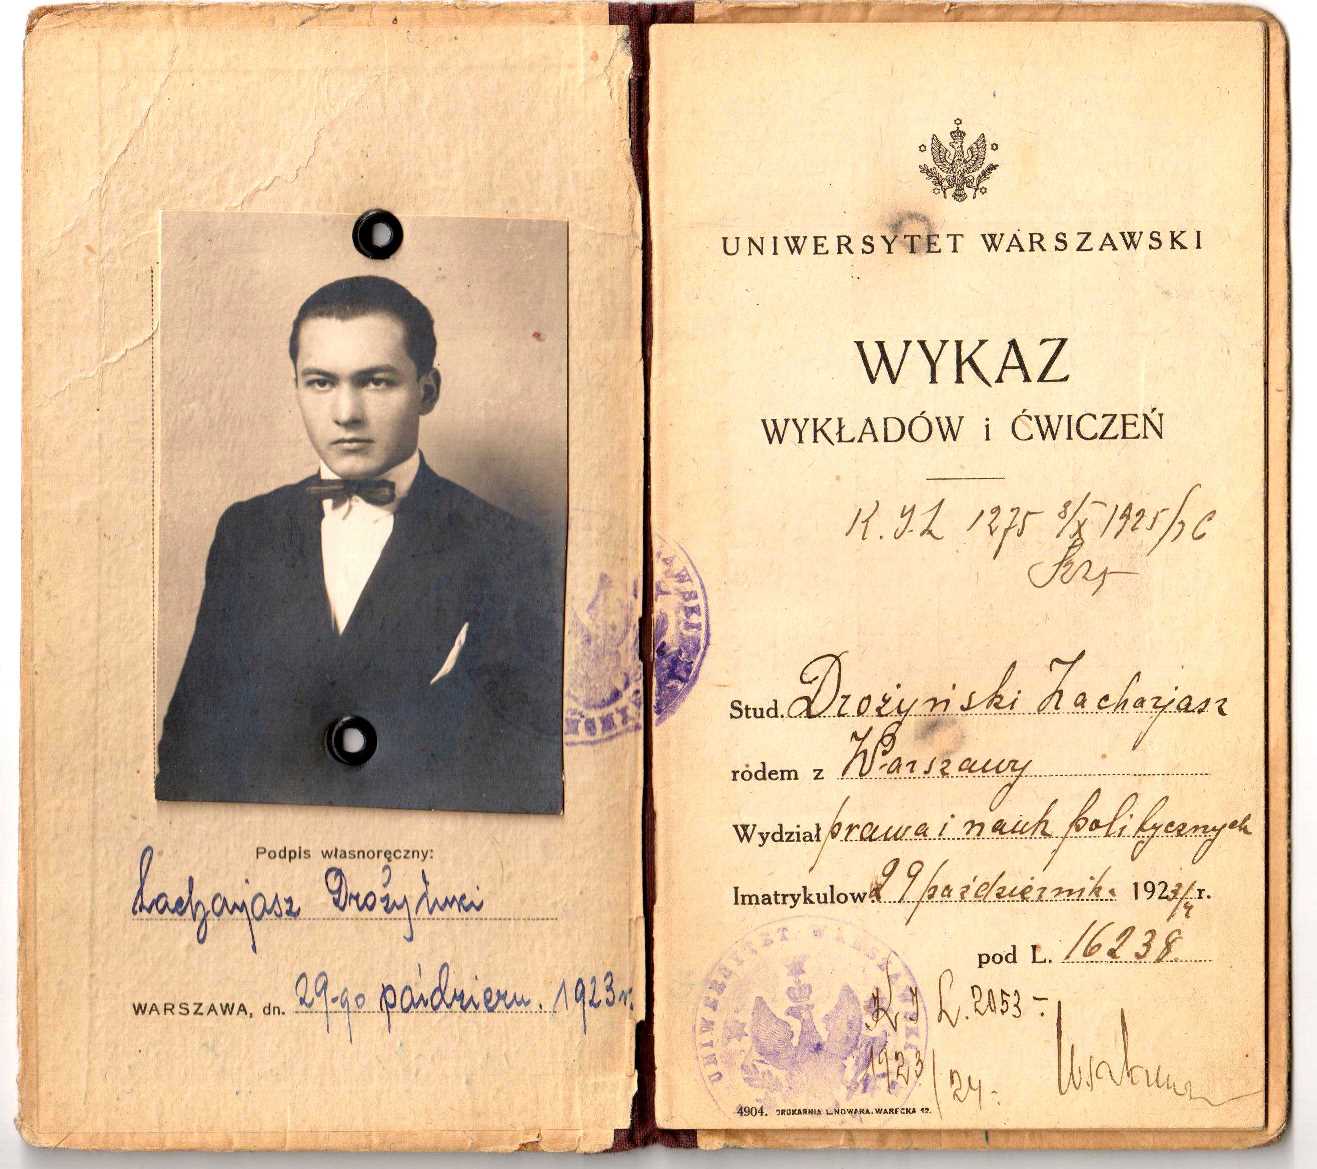 Podpis własnoręczny:
Zacharjasz Drożyński
WARSZAWA, dn. 29-go październ. 1923 r.
UNIWERSYTET WARSZAWSKI
WYKAZ
WYKŁADÓW i ĆWICZEŃ
K. J. L 1275 8/X 1925/26
Stud. Drożyński Zacharjasz
rodem z Warszawy
Wydział prawa i nauk politycznych
Imatrykulow. 29 październik. 1923/4 r.
pod L. 16238
K J L. 2053 -
1923/24.
UNIWERSYTET WARSZAWSKI
4904. DRUKARNIA L. NOWAKA. WARECKA 12.